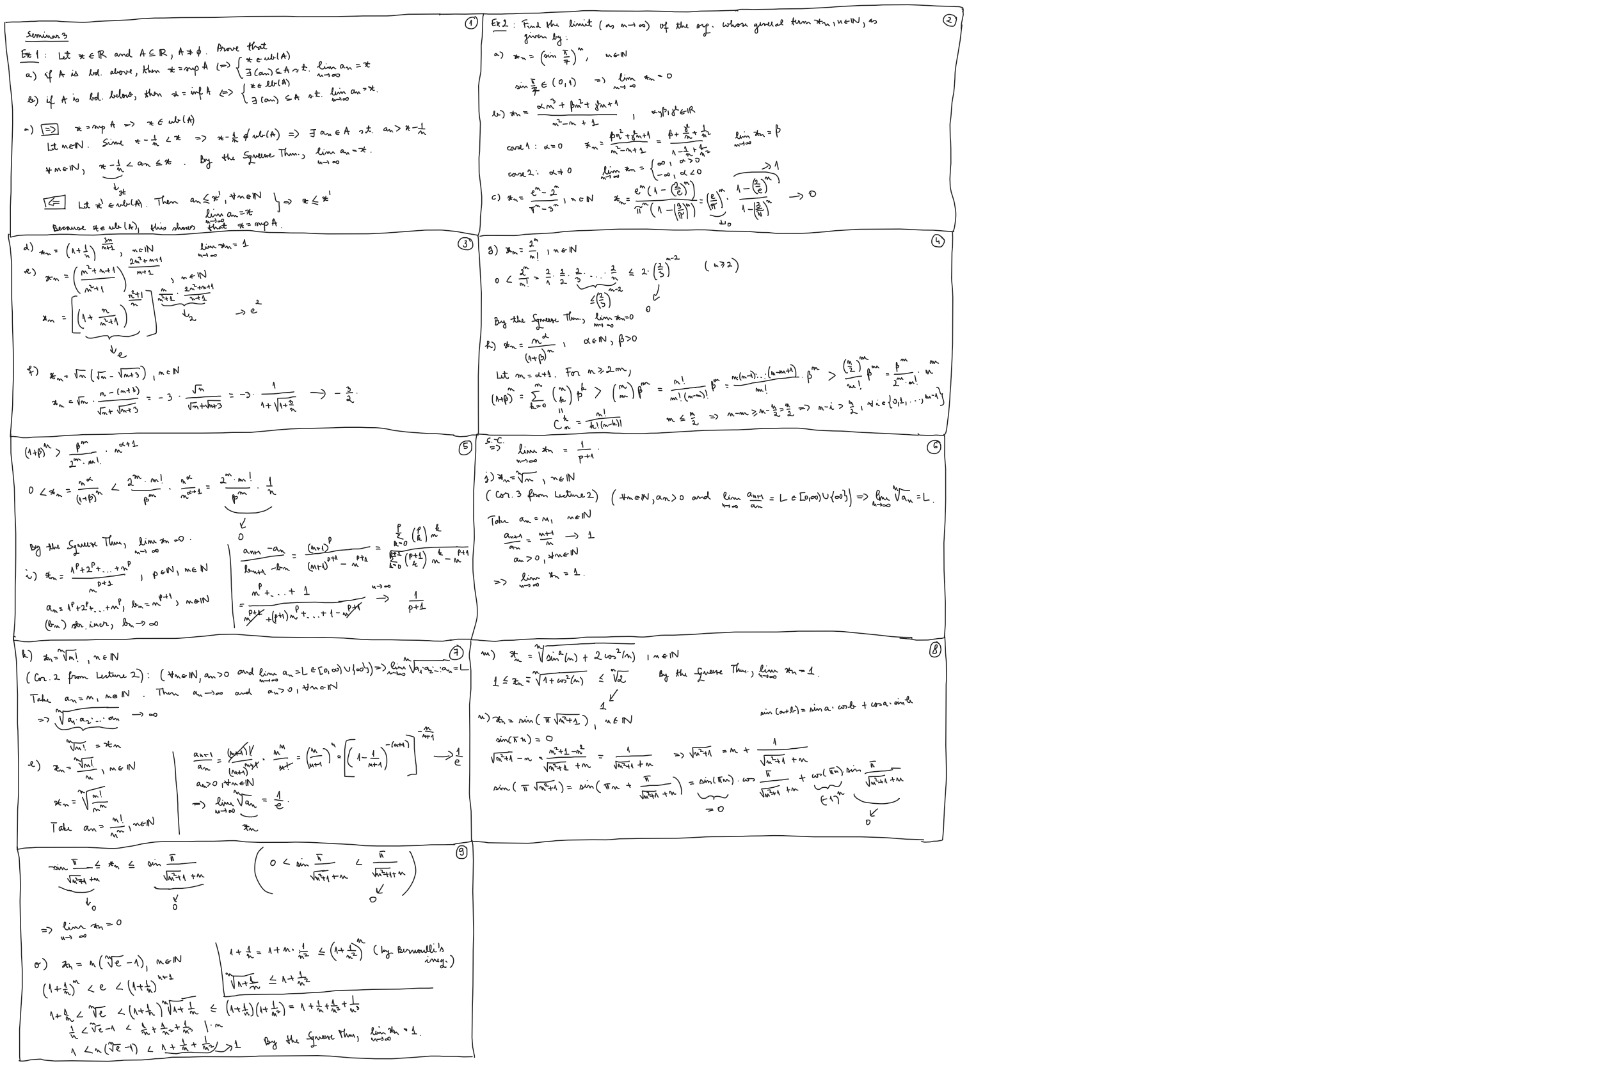 Seminar 3
①
Ex 1: Let x ∈ ℝ and A ⊆ ℝ, A ≠ ∅. Prove that
a) if A is bd. above, then x = sup A ⟺ { x ∈ ub(A)
∃ (an) ⊆ A s.t. lim n→∞ an = x
b) if A is bd. below, then x = inf A ⟺ { x ∈ lb(A)
∃ (an) ⊆ A s.t. lim n→∞ an = x.
a) ⇒ x = sup A ⇒ x ∈ ub(A)
Let n ∈ ℕ. Since x - 1/n < x ⇒ x - 1/n ∉ ub(A) ⇒ ∃ an ∈ A s.t. an > x - 1/n
∀ n ∈ ℕ, x - 1/n < an ≤ x. By the Squeeze Thm, lim n→∞ an = x.
↓ x
⇐ Let x' ∈ ub(A). Then an ≤ x', ∀ n ∈ ℕ
lim n→∞ an = x } ⇒ x ≤ x'
Because x ∈ ub(A), this shows that x = sup A.
②
Ex 2: Find the limit (as n→∞) of the seq. whose general term xn, n ∈ ℕ, is
given by:
a) xn = (sin π/7)^n, n ∈ ℕ
sin π/7 ∈ (0,1) ⇒ lim n→∞ xn = 0
b) xn = (αn³ + βn² + γn + 1)/(n² - n + 1), α, β, γ ∈ ℝ
case 1: α = 0 xn = (βn² + γn + 1)/(n² - n + 1) = (β + γ/n + 1/n²)/(1 - 1/n + 1/n²) lim n→∞ xn = β
case 2: α ≠ 0 lim n→∞ xn = { ∞, α > 0
-∞, α < 0
c) xn = (e^n - 2^n)/(π^n - 3^n), n ∈ ℕ xn = e^n (1 - (2/e)^n) / π^n (1 - (3/π)^n) = (e/π)^n · (1 - (2/e)^n)/(1 - (3/π)^n) → 0
↓ 0 → 1
③
d) xn = (1 + 1/n)^(3n/(n+1)), n ∈ ℕ lim n→∞ xn = 1
e) xn = ((n² + n + 1)/(n² + 1))^((2n² + n + 1)/(n+1)), n ∈ ℕ
xn = [(1 + n/(n²+1))^((n²+1)/n)]^(n/(n²+1) · (2n²+n+1)/(n+1)) → e²
↓ e ↓ 2
f) xn = √n (√n - √(n+3)), n ∈ ℕ
xn = √n · (n - (n+3))/(√n + √(n+3)) = -3 · √n/(√n + √(n+3)) = -3 · 1/(1 + √(1 + 3/n)) → -3/2.
④
g) xn = 2^n/n!, n ∈ ℕ
0 < 2^n/n! = 2/1 · 2/2 · 2/3 · ... · 2/n ≤ 2 · (2/3)^(n-2) (n ≥ 2)
≤ (2/3)^(n-2) ↓ 0
By the Squeeze Thm, lim n→∞ xn = 0
h) xn = n^α/(1+β)^n, α ∈ ℕ, β > 0
Let m = α + 1. For n ≥ 2m,
(1+β)^n = Σ k=0 n (n k) β^k > (n m) β^m = n!/(m!(n-m)!) β^m = n(n-1)...(n-m+1)/m! · β^m > (n/2)^m/m! β^m = β^m/(2^m · m!) · n^m
C_n^k = n!/(k!(n-k)!) m ≤ n/2 ⇒ n - m ≥ n - n/2 = n/2 ⇒ n - i > n/2, ∀ i ∈ {0,1,...,m-1}
⑤
(1+β)^n > β^m/(2^m · m!) · n^(α+1)
0 < xn = n^α/(1+β)^n < 2^m · m!/β^m · n^α/n^(α+1) = 2^m · m!/β^m · 1/n
↓ 0
By the Squeeze Thm, lim n→∞ xn = 0.
i) xn = (1^p + 2^p + ... + n^p)/n^(p+1), p ∈ ℕ, n ∈ ℕ
an = 1^p + 2^p + ... + n^p, bn = n^(p+1), n ∈ ℕ
(bn) str. incr., bn → ∞
(an+1 - an)/(bn+1 - bn) = (n+1)^p/((n+1)^(p+1) - n^(p+1)) = Σ k=0 p (p k) n^k / (Σ k=0 p+1 (p+1 k) n^k - n^(p+1))
= (n^p + ... + 1)/(n^(p+1) + (p+1)n^p + ... + 1 - n^(p+1)) n→∞ → 1/(p+1)
⑥
S.-C.
⇒ lim n→∞ xn = 1/(p+1).
j) xn = ⁿ√n, n ∈ ℕ
(Cor. 3 from Lecture 2) (∀ n ∈ ℕ, an > 0 and lim n→∞ an+1/an = L ∈ [0,∞) ∪ {∞}) ⇒ lim n→∞ ⁿ√an = L.
Take an = n, n ∈ ℕ
an+1/an = (n+1)/n → 1
an > 0, ∀ n ∈ ℕ
⇒ lim n→∞ xn = 1.
⑦
k) xn = ⁿ√n!, n ∈ ℕ
(Cor. 2 from Lecture 2): (∀ n ∈ ℕ, an > 0 and lim n→∞ an = L ∈ [0,∞) ∪ {∞}) ⇒ lim n→∞ ⁿ√(a1·a2·...·an) = L
Take an = n, n ∈ ℕ. Then an → ∞ and an > 0, ∀ n ∈ ℕ
⇒ ⁿ√(a1·a2·...·an) → ∞
ⁿ√n! = xn
l) xn = ⁿ√n!/n, n ∈ ℕ
xn = ⁿ√(n!/n^n)
Take an = n!/n^n, n ∈ ℕ
an+1/an = (n+1)!/(n+1)^(n+1) · n^n/n! = (n/(n+1))^n = [(1 - 1/(n+1))^(-(n+1))]^(-n/(n+1)) → 1/e
an > 0, ∀ n ∈ ℕ
⇒ lim n→∞ ⁿ√an = 1/e.
xn
⑧
m) xn = ⁿ√(sin²(n) + 2cos²(n)), n ∈ ℕ
1 ≤ xn = ⁿ√(1 + cos²(n)) ≤ ⁿ√2 By the Squeeze Thm, lim n→∞ xn = 1.
↓ 1
n) xn = sin(π√(n²+1)), n ∈ ℕ sin(a+b) = sin a · cos b + cos a · sin b
sin(πn) = 0
√(n²+1) - n = (n²+1-n²)/(√(n²+1) + n) = 1/(√(n²+1) + n) ⇒ √(n²+1) = n + 1/(√(n²+1) + n)
sin(π√(n²+1)) = sin(πn + π/(√(n²+1) + n)) = sin(πn) · cos π/(√(n²+1) + n) + cos(πn) sin π/(√(n²+1) + n)
= 0 (-1)^n ↓ 0
⑨
-sin π/(√(n²+1) + n) ≤ xn ≤ sin π/(√(n²+1) + n) (0 < sin π/(√(n²+1) + n) < π/(√(n²+1) + n))
↓ 0 ↓ 0 ↓ 0
⇒ lim n→∞ xn = 0
o) xn = n(ⁿ√e - 1), n ∈ ℕ
(1 + 1/n)^n < e < (1 + 1/n)^(n+1)
1 + 1/n = 1 + n · 1/n² ≤ (1 + 1/n²)^n (by Bernoulli's
ineq.)
ⁿ√(1 + 1/n) ≤ 1 + 1/n²
1 + 1/n < ⁿ√e < (1 + 1/n) ⁿ√(1 + 1/n) ≤ (1 + 1/n)(1 + 1/n²) = 1 + 1/n + 1/n² + 1/n³
1/n < ⁿ√e - 1 < 1/n + 1/n² + 1/n³ | · n
1 < n(ⁿ√e - 1) < 1 + 1/n + 1/n² → 1 By the Squeeze Thm, lim n→∞ xn = 1.